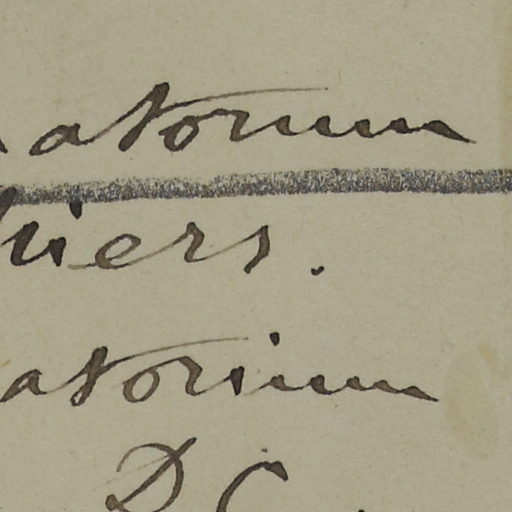 atorium
hiers.
atorium
D C